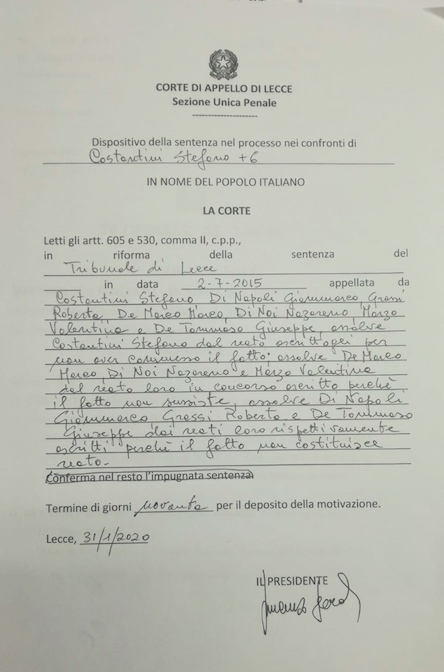 CORTE DI APPELLO DI LECCE
Sezione Unica Penale
--------------------
Dispositivo della sentenza nel processo nei confronti di
Costantini Stefano +6
IN NOME DEL POPOLO ITALIANO
LA CORTE
Letti gli artt. 605 e 530, comma II, c.p.p.,
in riforma della sentenza del
Tribunale di Lecce
in data 2-7-2015 appellata da
Costantini Stefano, Di Napoli Gianmarco, Grassi
Roberta, De Marco Marco, Di Noi Nazareno, Marzo
Valentina e De Tommaso Giuseppe, assolve
Costantini Stefano dal reato ascrittogli per
non aver commesso il fatto; assolve De Marco
Marco, Di Noi Nazareno e Marzo Valentina
dal reato loro in concorso ascritto perché
il fatto non sussiste, assolve Di Napoli
Gianmarco Grassi Roberta e De Tommaso
Giuseppe dai reati loro rispettivamente
ascritti perché il fatto non costituisce
reato.
Conferma nel resto l'impugnata sentenza
Termine di giorni novanta per il deposito della motivazione.
Lecce, 31/1/2020
IL PRESIDENTE